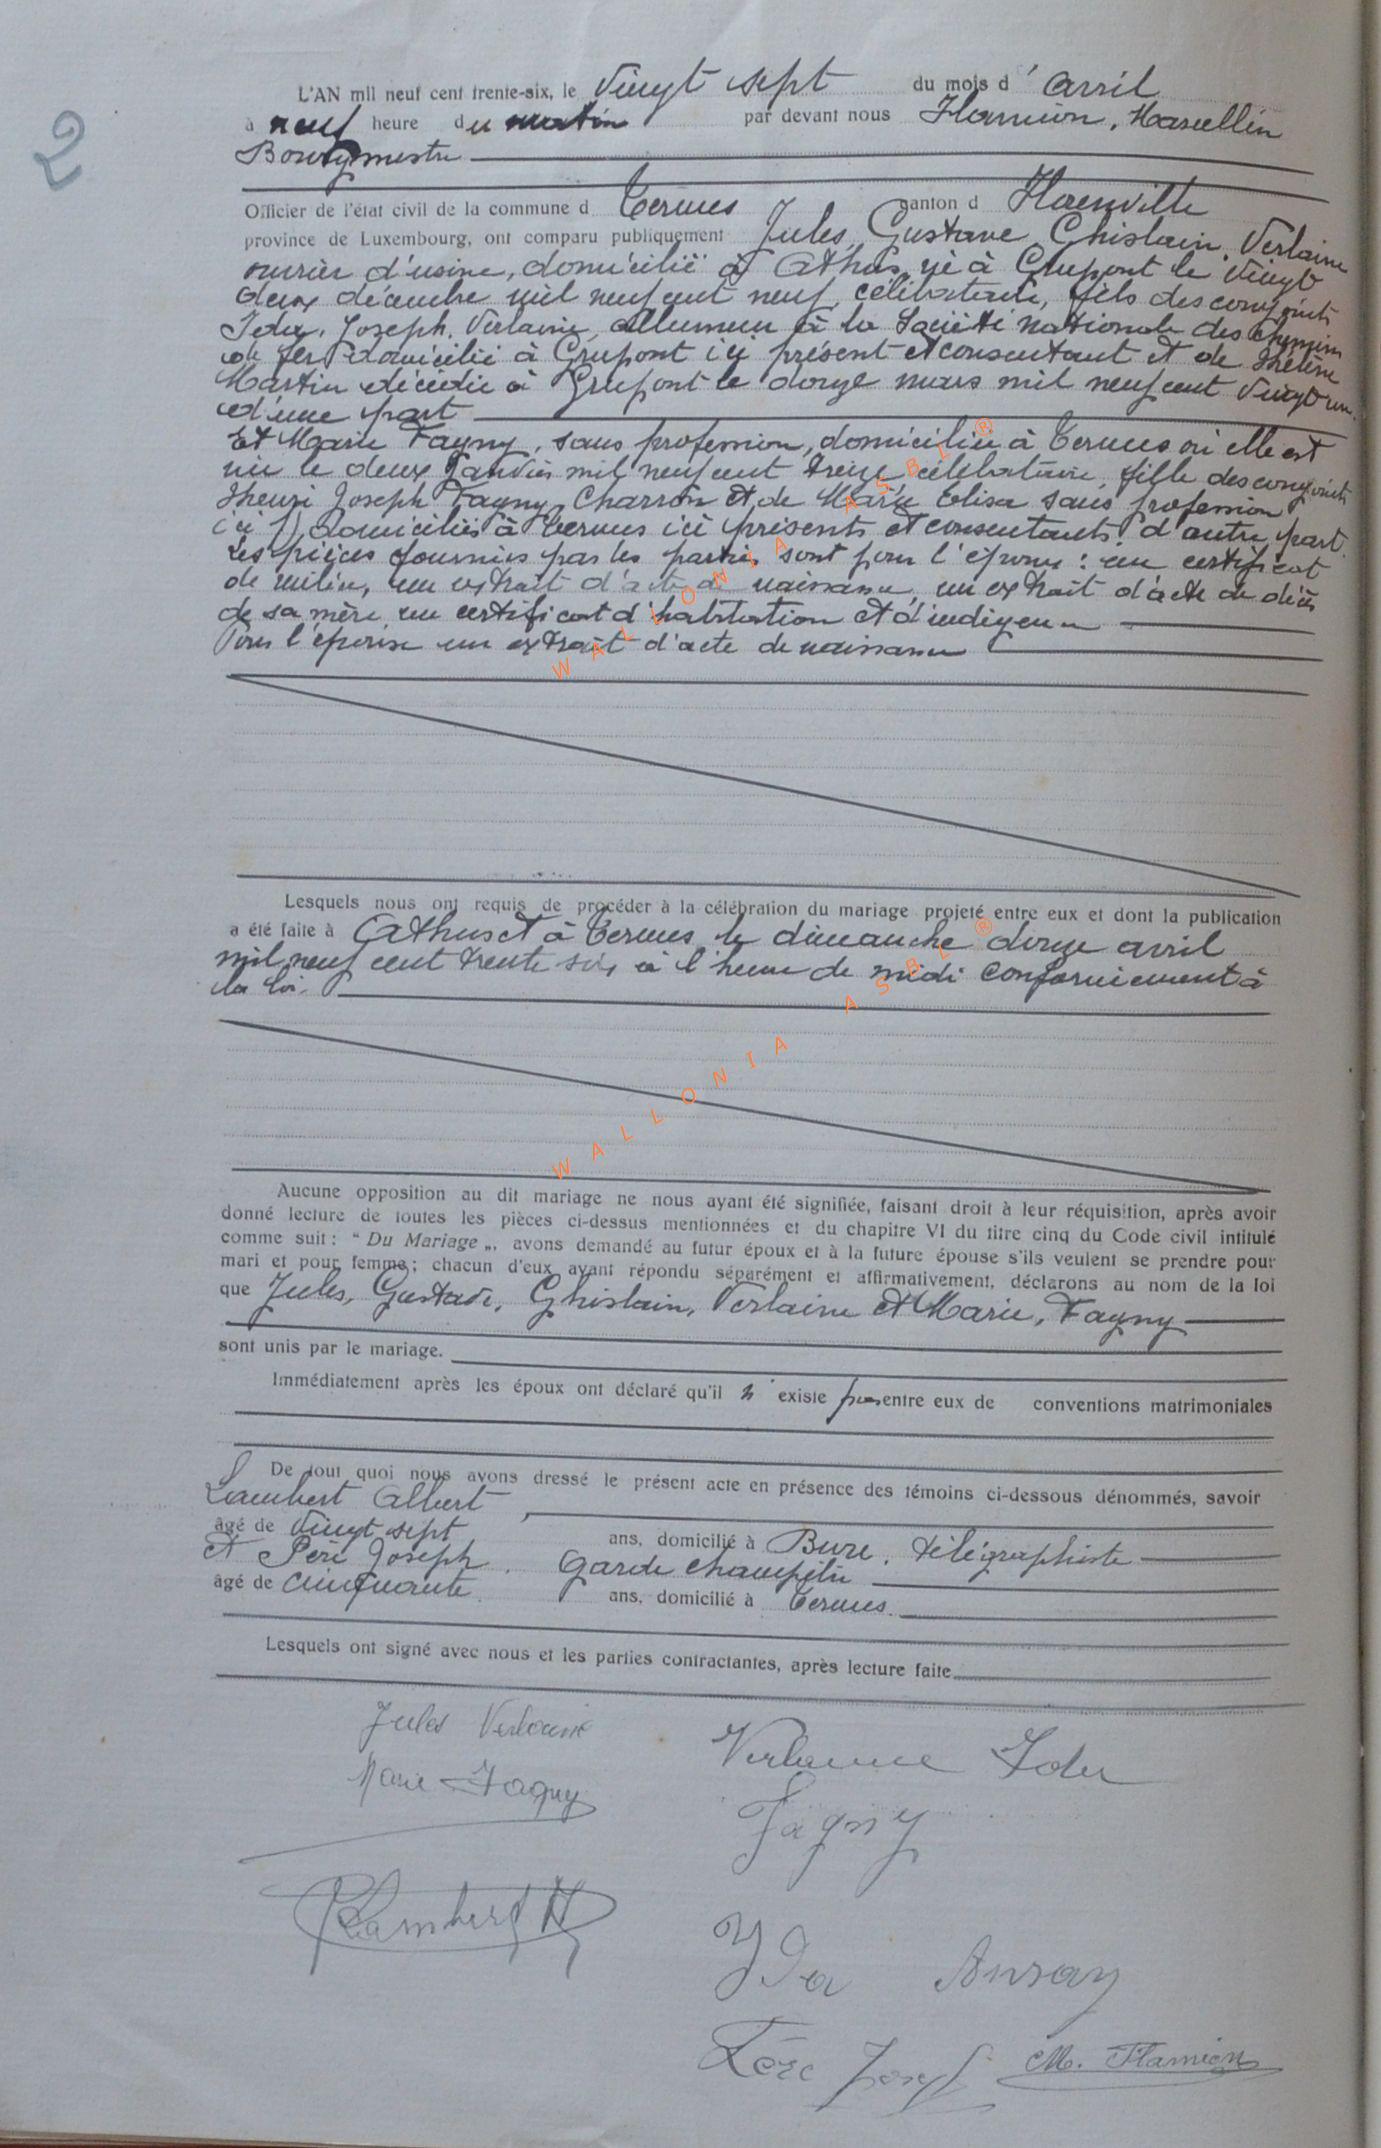 2
L'AN mil neuf cent trente-six, le vingt sept du mois d' avril
à neuf heure du matin par devant nous Flamion, Marcellin
Bourgmestre
Officier de l'état civil de la commune d Termes canton d Florenville
province de Luxembourg, ont comparu publiquement Jules, Gustave Ghislain, Verlaine
ouvrier d'usine, domicilié à Athus, né à Grupont le vingt
deux décembre mil neuf cent neuf, célibataire, fils des conjoints
Joseph. Verlaine, allumeur à la Société nationale des chemins
de fer domicilié à Grupont ici présent et consentant et de Hélène
Martin décédée à Grupont le douze mars mil neuf cent vingt un.
d'une part
Et Marie Fagny, sans profession, domiciliée à Termes où elle est
née le deux Janvier mil neuf cent treize, célibataire, fille des conjoints
Joseph Fagny, Charron et de Marie Elisa sans profession
domiciliés à Termes ici présents et consentants, d'autre part.
Les pièces fournies par les parties sont pour l'époux : un certificat
de milice, un extrait d'acte de naissance, un extrait d'acte de décès
de sa mère, un certificat d'habitation et d'indigence
Pour l'épouse un extrait d'acte de naissance
Lesquels nous ont requis de procéder à la célébration du mariage projeté entre eux et dont la publication
a été faite à Athus et à Termes le dimanche douze avril
mil neuf cent trente six à l'heure de midi conformément à
la loi.
Aucune opposition au dit mariage ne nous ayant été signifiée, faisant droit à leur réquisition, après avoir
donné lecture de toutes les pièces ci-dessus mentionnées et du chapitre VI du titre cinq du Code civil intitulé
comme suit : " Du Mariage „, avons demandé au futur époux et à la future épouse s'ils veulent se prendre pour
mari et pour femme ; chacun d'eux ayant répondu séparément et affirmativement, déclarons au nom de la loi
que Jules, Gustave, Ghislain, Verlaine et Marie, Fagny
sont unis par le mariage.
Immédiatement après les époux ont déclaré qu'il n' existe pas entre eux de conventions matrimoniales
De tout quoi nous avons dressé le présent acte en présence des témoins ci-dessous dénommés, savoir
Lambert Albert
âgé de vingt sept ans, domicilié à Bure, télégraphiste
et Péré Joseph. Garde champêtre
âgé de cinquante ans, domicilié à Termes.
Lesquels ont signé avec nous et les parties contractantes, après lecture faite
Jules Verlaine
Verlaine
Marie Fagny
Fagny
Lambert A
Ida Ansay
Joseph M. Flamion
WALLONIA ASBL ®
WALLONIA ASBL ®